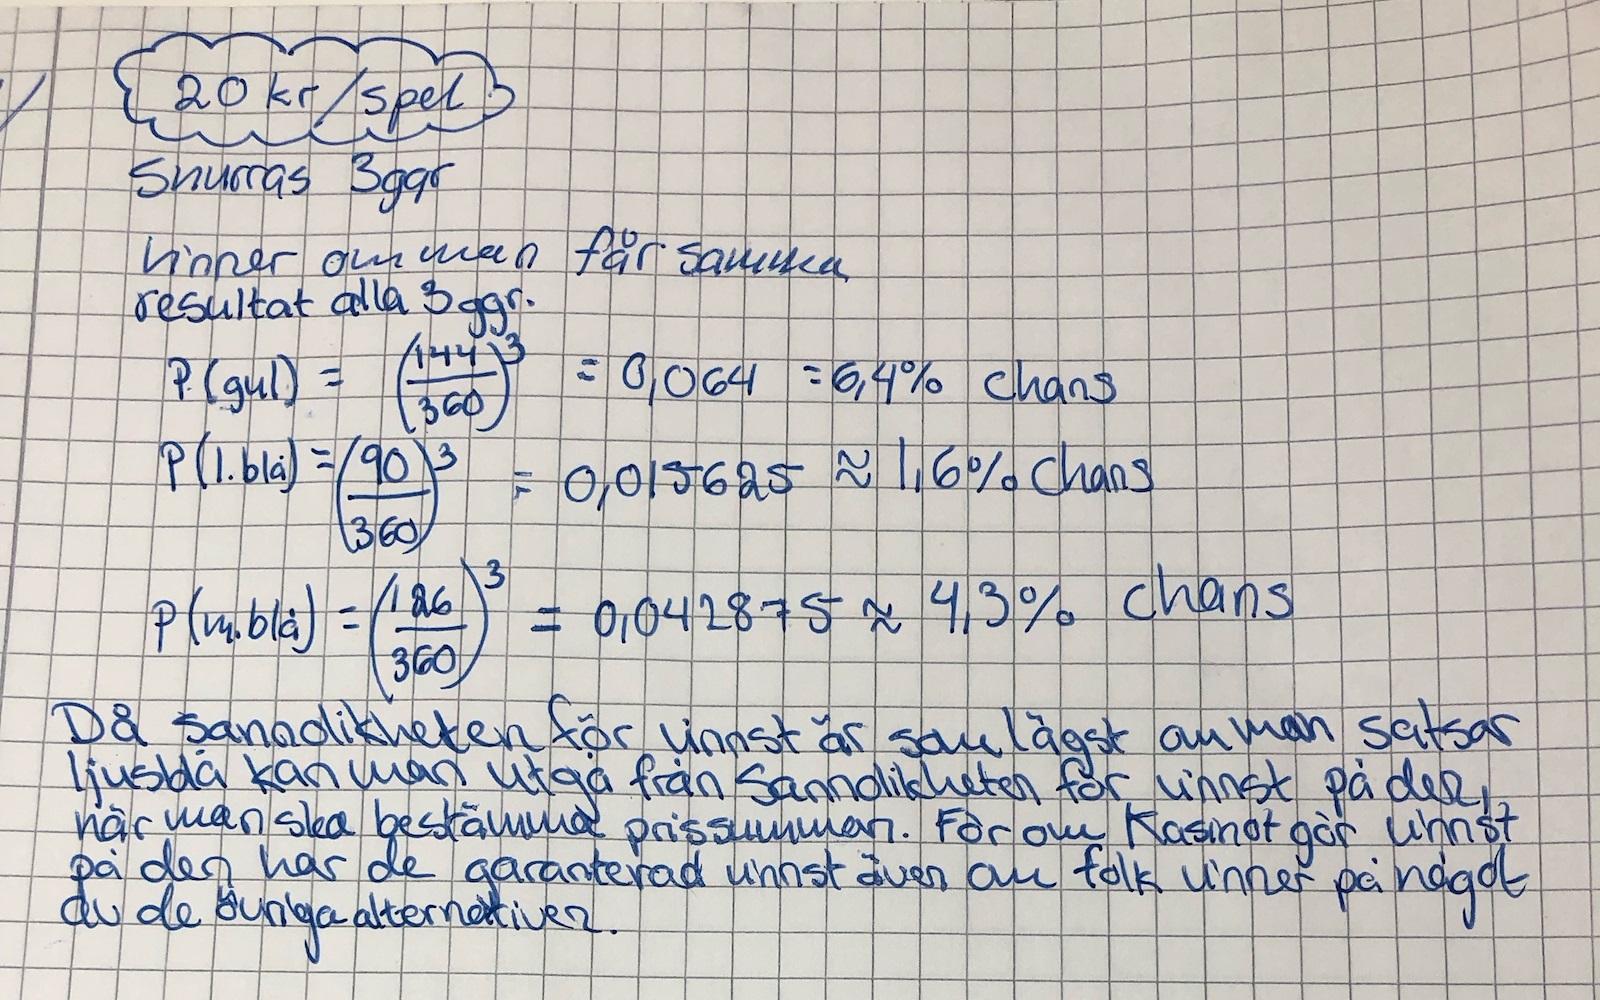 20 kr/spel
Snurras 3ggr
Vinner om man får samma
resultat alla 3 ggr.
P(gul) = (144/360)^3 = 0,064 = 6,4% chans
P(l.blå) = (90/360)^3 = 0,015625 ≈ 1,6% chans
P(m.blå) = (126/360)^3 = 0,042875 ≈ 4,3% chans
Då sannolikheten för vinnst är som lägst om man satsar
ljusblå kan man utgå från sannolikheten för vinnst på den,
när man ska bestämma prissumman. För om Kasinot gör vinnst
på den har de garanterad vinnst även om folk vinner på något
av de övriga alternativen.